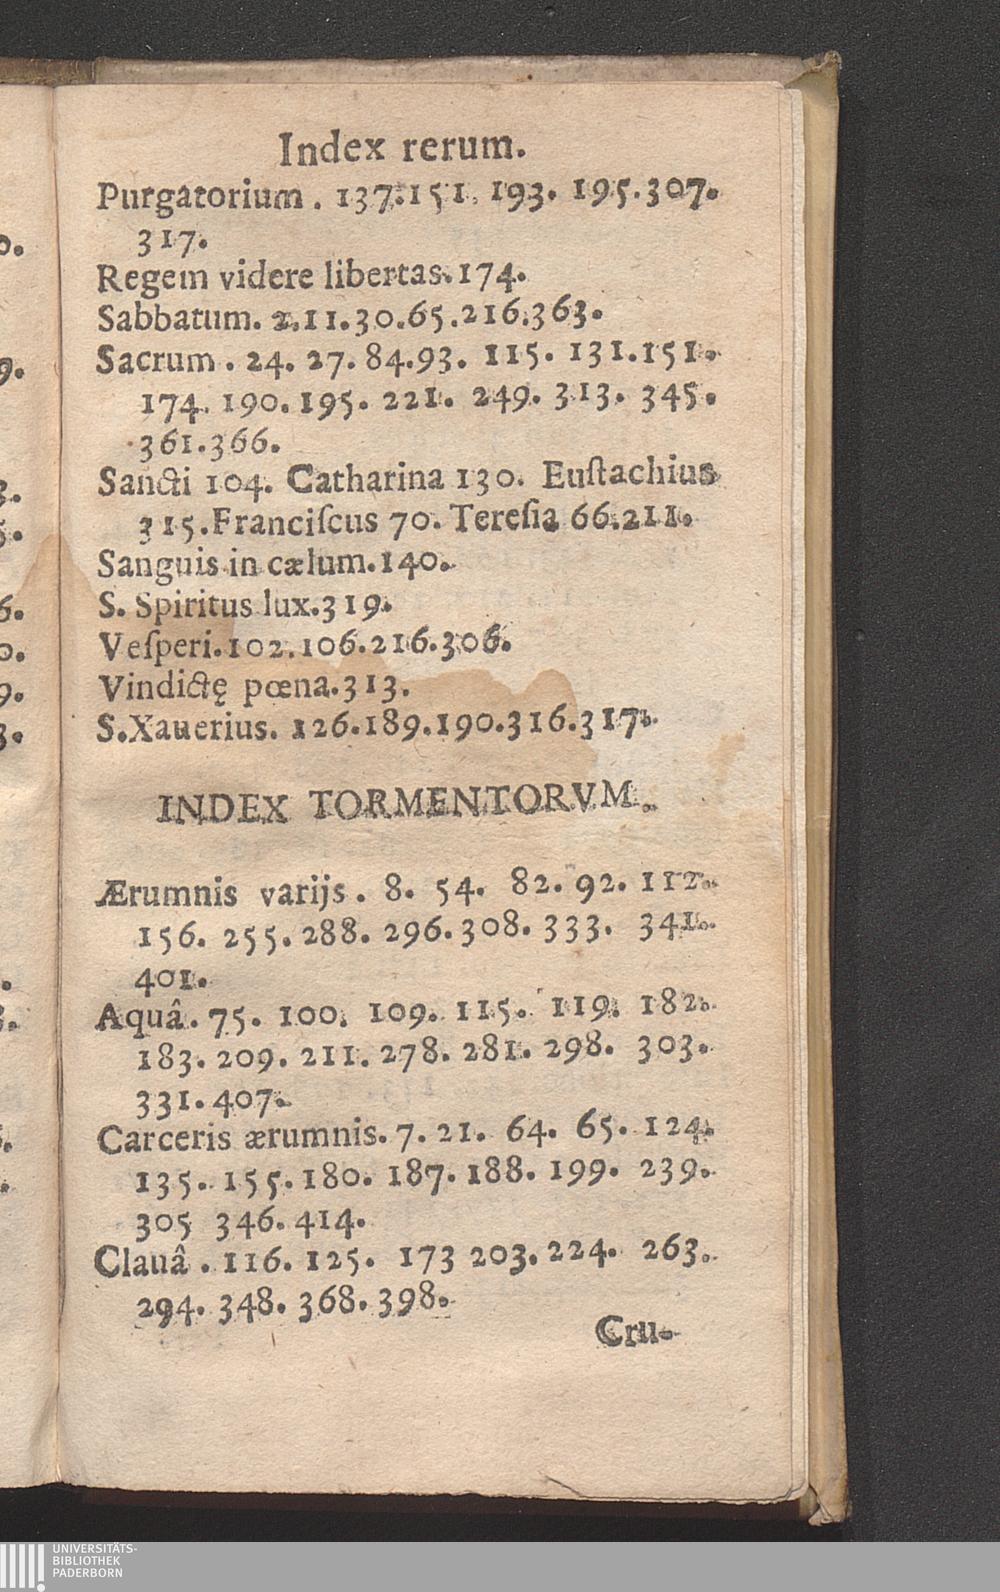 Index rerum.
Purgatorium. 137.151. 193. 195.307.
317.
Regem videre libertas.174.
Sabbatum. 2.11.30.65.216.363.
Sacrum. 24. 27. 84.93. 115. 131.151.
174. 190. 195. 221. 249. 313. 345.
361.366.
Sancti 104. Catharina 130. Euſtachius
315.Franciſcus 70. Tereſia 66.211.
Sanguis in cælum.140.
S. Spiritus lux.319.
Veſperi.102.106.216.306.
Vindictę pœna.313.
S.Xauerius. 126.189.190.316.317.
INDEX TORMENTORVM.
Ærumnis varijs. 8. 54. 82. 92. 112.
156. 255. 288. 296. 308. 333. 341.
401.
Aquâ. 75. 100. 109. 115. 119. 182.
183. 209. 211. 278. 281. 298. 303.
331. 407.
Carceris ærumnis. 7. 21. 64. 65. 124.
135. 155. 180. 187. 188. 199. 239.
305 346. 414.
Clauâ. 116. 125. 173 203. 224. 263.
294. 348. 368. 398.
Cru-
UNIVERSITÄTS-
BIBLIOTHEK
PADERBORN